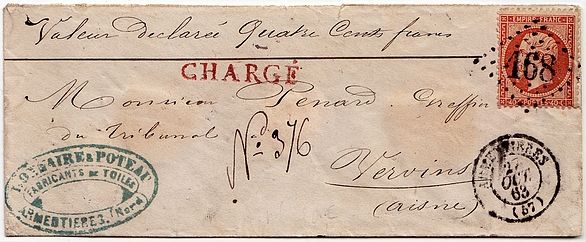 Valeur Déclarée Quatre Cents francs
EMPIRE FRANC
168
CHARGÉ
Monsieur Penard, Greffier
du Tribunal
Nº 376
Vervins
(Aisne)
& POTEAU
FABRICANTS DE TOILES
ARMENTIÈRES. (Nord)
ARMENTIERES
OCT.
63
(57)